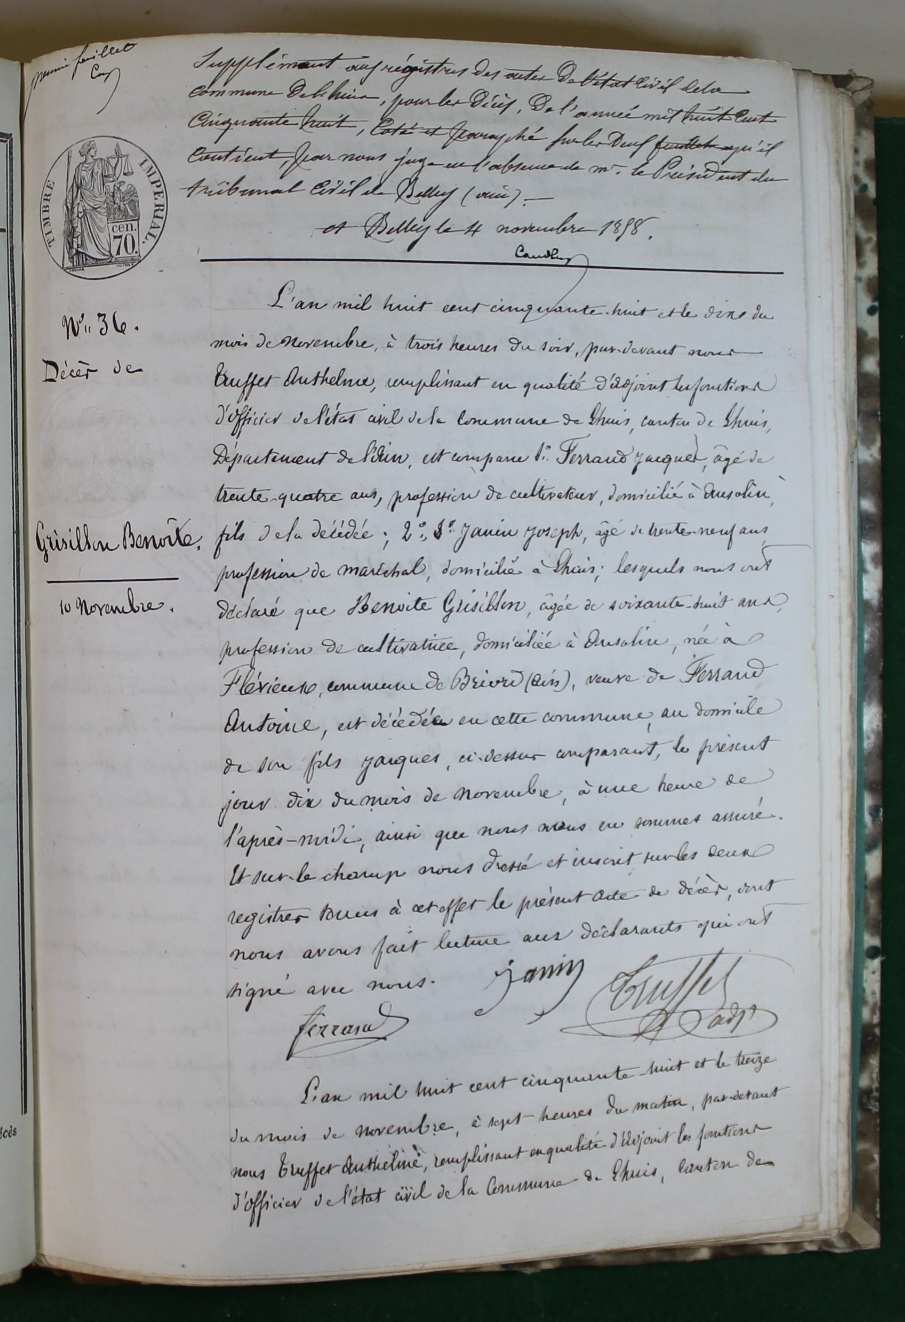 premier feuillet
Supplément aux régistres des actes de l'état civil de la
commune de Lhuis, pour les Décès, De l'année mil huit cent
Cinquante huit, Coté et paraphé sur les Deux feuillets qu'il
Contient, par nous juge en l'absence de Mr. le Président du
tribunal Civil de Belley (ain).—
à Belley le 4 novembre 1858.
TIMBRE IMPERIAL
cen.
70
N° 36.
Décès de
Grisillon Benoite.
10 Novembre.
L'an mil huit cent cinquante-huit et le dix du
mois de Novembre, à trois heures du soir, par-devant nous
Truffet Anthelme, remplissant en qualité d'adjoint les fonctions
d'officier de l'état civil de la commune de Lhuis, canton de Lhuis,
Département de l'Ain, est comparu 1° Ferrand Jacques, âgé de
trente-quatre ans, profession de cultivateur, domicilié à Ansolin,
fils de la décédée; 2° Sr Janin Joseph, âgé de trente-neuf ans
profession de maréchal, domicilié à Lhuis; lesquels nous ont
déclaré que Benoite Grisillon, âgée de soixante-huit ans,
profession de cultivatrice, domiciliée à Ansolin, née à
Flévieux, commune de Briord (ain), veuve de Ferrand
Antoine, est décédée en cette commune, au domicile
de son fils Jacques, ci-dessus comparant, le présent
jour dix du mois de novembre, à une heure de
l'après-midi, ainsi que nous nous en sommes assuré.
Et sur-le-champ nous dressé et inscrit sur les deux
registres tenus à cet effet le présent acte de décès, dont
nous avons fait lecture aux déclarants qui ont
signé avec nous.
Janin
Truffet
adjt
ferrand
L'an mil huit cent cinquante-huit et le treize
du mois de novembre, à sept heures du matin, par-devant
nous Truffet Anthelme, remplissant en qualité d'adjoint les fonctions
d'officier de l'état civil de la Commune de Lhuis, Canton de